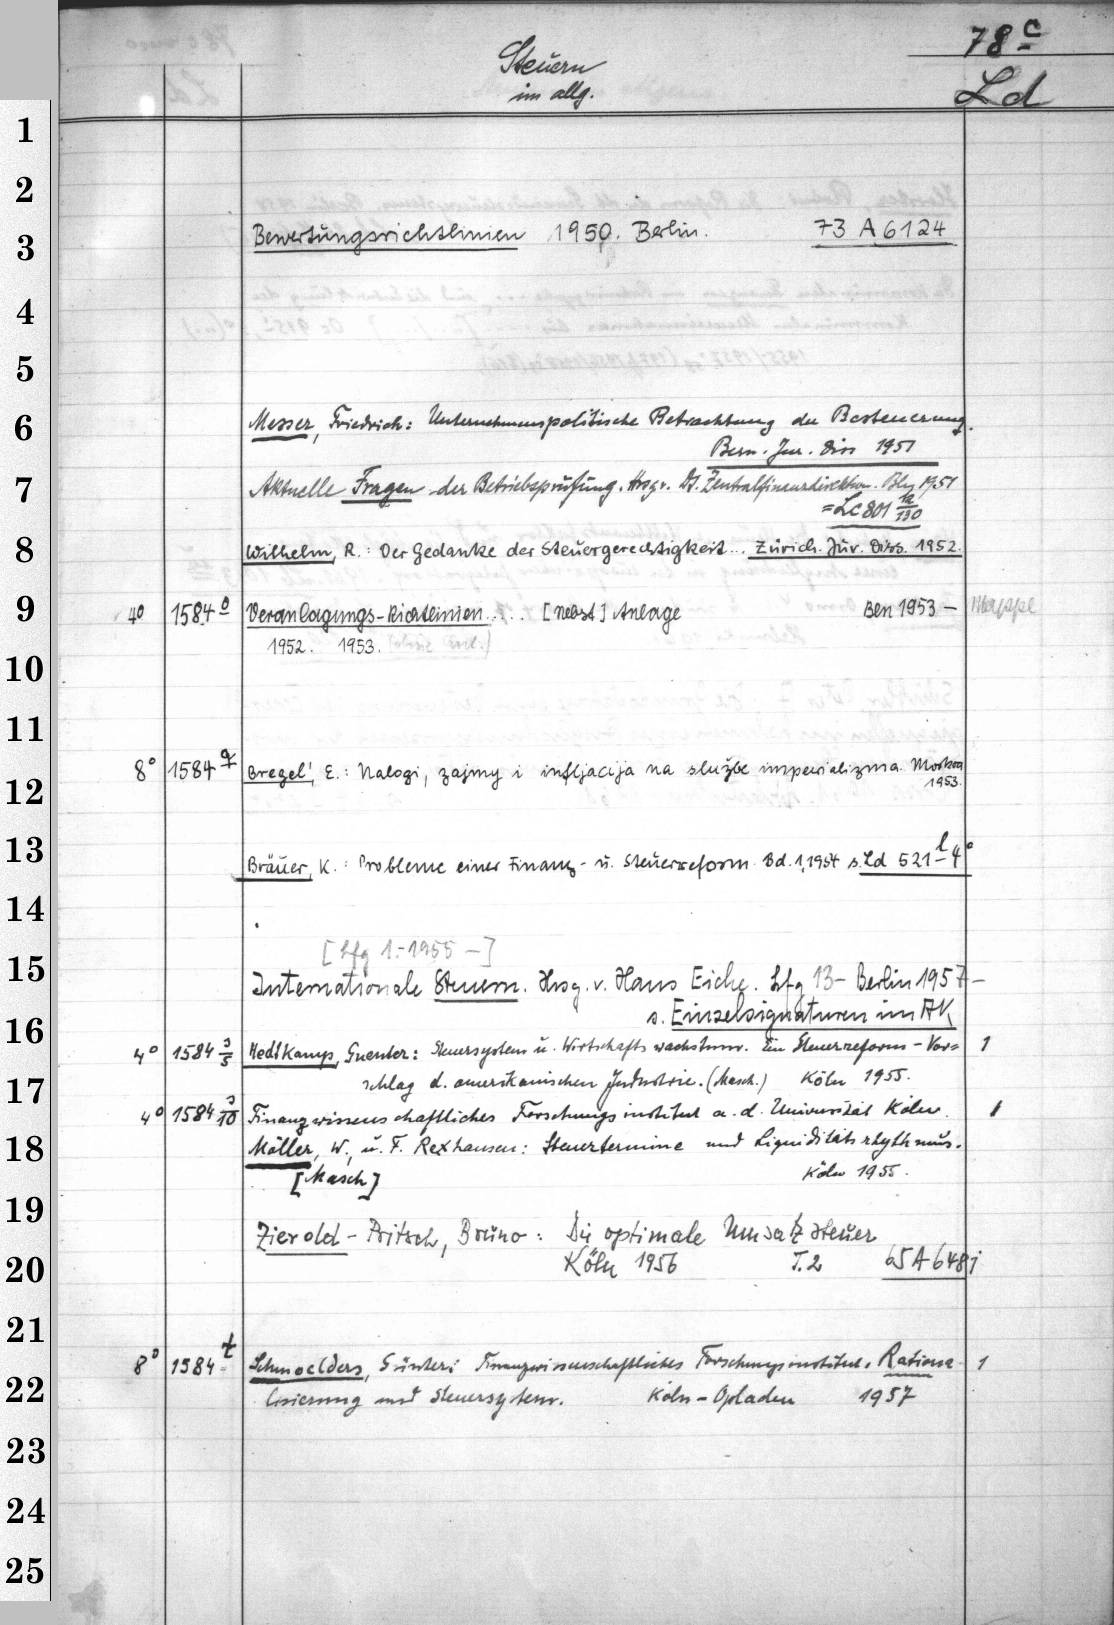 78c
Steuern
im allg.
Ld
1
2
3 Bewertungsrichtlinien 1950. Berlin. 73 A 6124
4
5
6 Messer, Friedrich: Unternehmenspolitische Betrachtung der Besteuerung.
Bern. Jur. Diss 1951
7 Aktuelle Fragen der Betriebsprüfung. Hrsg. v. D. Zentralfinanzdirektion. Bln 1951
= Lc 801 130
8 Wilhelm, R.: Der Gedanke der Steuergerechtigkeit... Zürich. Jur. Diss. 1952.
9 4o 1584 o Veranlagungs-Richtlinien.... [nebst] Anlage Bln 1953 – Mappe
1952. 1953.
10
11
12 8o 1584 q Bregel', E.: Nalogi, zajmy i infljacija na službe imperializma. Moskva
1953.
13 Bräuer, K.: Probleme einer Finanz- u. Steuerreform Bd. 1, 1954 s. Ld 521 l 4o
14
[Lfg 1.-1955 –]
15 Internationale Steuern. Hrsg. v. Hans Eiche. Lfg 13– Berlin 1957–
s. Einzelsignaturen im AK
16 4o 1584 s/5 Hedtkamp, Guenter: Steuersystem u. Wirtschaftswachstum. Ein Steuerreform-Vor= 1
17 schlag d. amerikanischen Industrie. (Masch.) Köln 1955.
4o 1584 s/10 Finanzwissenschaftliches Forschungsinstitut a. d. Universität Köln. 1
18 Möller, W., u. F. Rexhausen: Steuertermine und Liquiditätsrhythmus.
[Masch] Köln 1955.
19 Zierold-Pritsch, Bruno: Die optimale Umsatzsteuer
20 Köln 1956 T. 2 65 A 6481
21
8o 1584 t Schmoelders, Günter: Finanzwissenschaftliches Forschungsinstitut. Rationa- 1
22 lisierung und Steuersystem. Köln-Opladen 1957
23
24
25